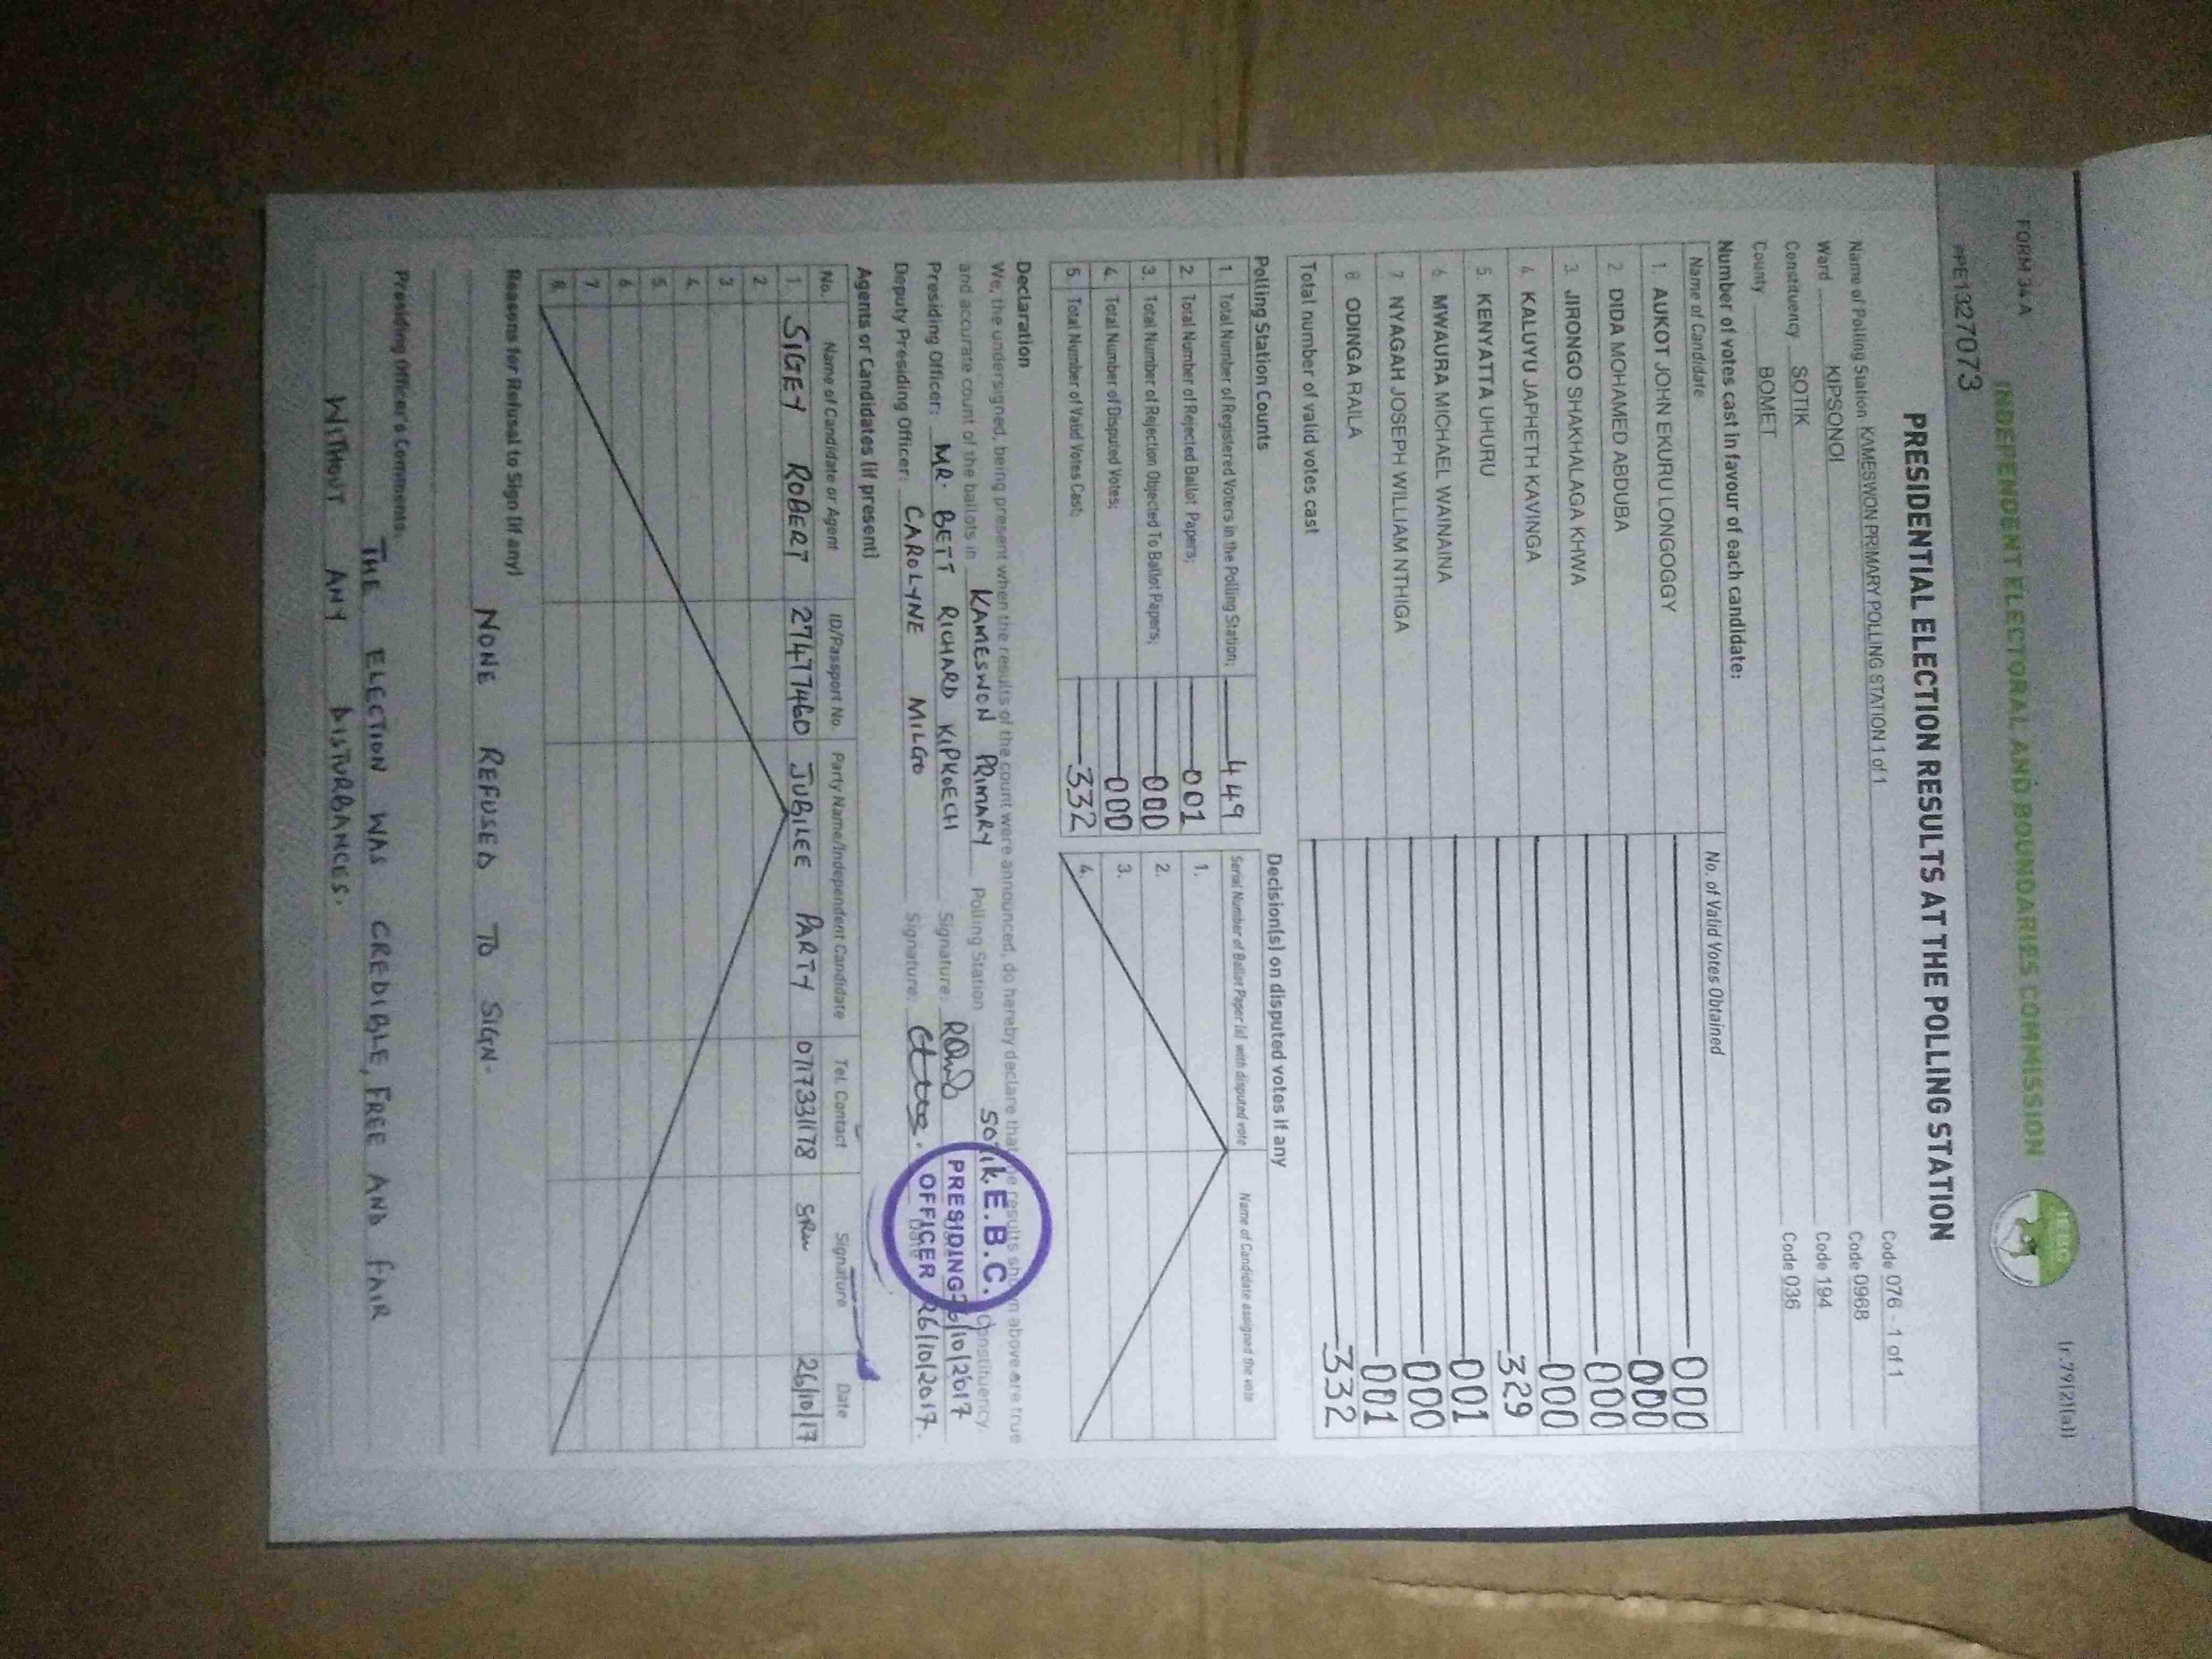 FORM 34 A
(r.79(2)(a))
INDEPENDENT ELECTORAL AND BOUNDARIES COMMISSION
PPE1327073
PRESIDENTIAL ELECTION RESULTS AT THE POLLING STATION
Name of Polling Station KAMESWON PRIMARY POLLING STATION 1 of 1 Code 076 - 1 of 1
Ward KIPSONOI Code 0968
Constituency SOTIK Code 194
County BOMET Code 036
Number of votes cast in favour of each candidate:
Name of Candidate No. of Valid Votes Obtained
1. AUKOT JOHN EKURU LONGOGGY 000
2 DIDA MOHAMED ABDUBA 000
3. JIRONGO SHAKHALAGA KHWA 000
4. KALUYU JAPHETH KAVINGA 000
5. KENYATTA UHURU 329
6 MWAURA MICHAEL WAINAINA 001
7 NYAGAH JOSEPH WILLIAM NTHIGA 000
8 ODINGA RAILA 001
Total number of valid votes cast 332
Polling Station Counts
1. Total Number of Registered Voters in the Polling Station; 449
2. Total Number of Rejected Ballot Papers; 001
3. Total Number of Rejection Objected To Ballot Papers; 000
4. Total Number of Disputed Votes; 000
5. Total Number of Valid Votes Cast; 332
Decision(s) on disputed votes if any
Serial Number of Ballot Paper (s) with disputed vote Name of Candidate assigned the vote
1.
2.
3.
4.
Declaration
We, the undersigned, being present when the results of the count were announced, do hereby declare that the results shown above are true
and accurate count of the ballots in KAMESWON PRIMARY Polling Station SOTIK Constituency
Presiding Officer: MR. BETT RICHARD KIPKOECH Signature: 26/10/2017
Deputy Presiding Officer: CAROLYNE MILGO Signature: Date 26/10/2017.
I.E.B.C.
PRESIDING
OFFICER
Agents or Candidates (if present)
No. Name of Candidate or Agent ID/Passport No. Party Name/Independent Candidate Tel. Contact Signature Date
1. SIGEY ROBERT 27477460 JUBILEE PARTY 0717331178 26/10/17
2
3
4.
5.
6
7
8.
Reasons for Refusal to Sign (if any)
NONE REFUSED TO SIGN.
Presiding Officer's Comments.
THE ELECTION WAS CREDIBLE, FREE AND FAIR
WITHOUT ANY DISTURBANCES.